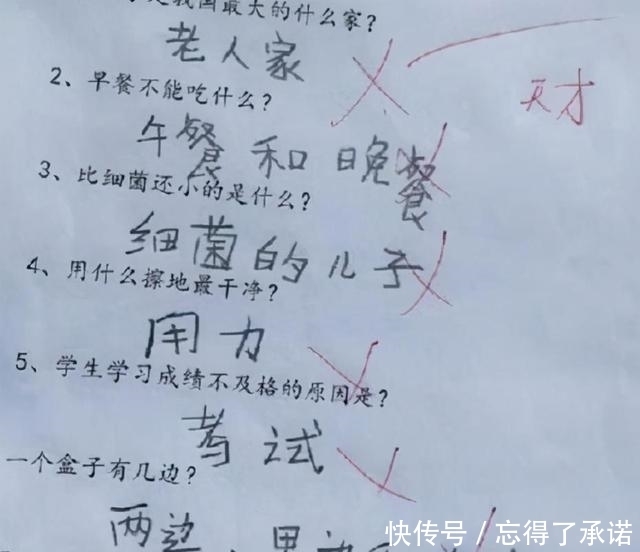 是我国最大的什么家？
老人家
天才
2、早餐不能吃什么？
午餐和晚餐
3、比细菌还小的是什么？
细菌的儿子
4、用什么擦地最干净？
用力
5、学生学习成绩不及格的原因是？
考试
一个盒子有几边？
两边
快传号/忘得了承诺